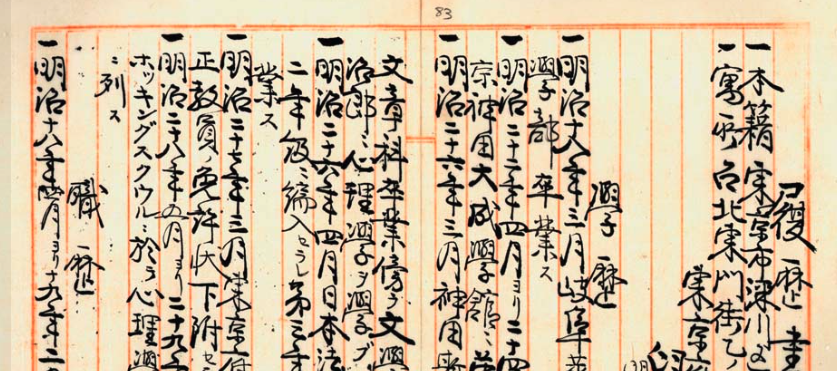 83
履歴書
一本籍 東京市深川区
一寓所 台北東門街乙ノ
東京
學歴
一明治十八年三月岐阜
學部卒業ス
一明治二十二年四月ヨリ二十四
京神田大成學館ニ
一明治二十六年三月神田
文章科卒業傍ラ文學
治郎ニ心理學ヲ學ブ
一明治二十六年四月日本法
二年級ニ編入セラレ第三年
業ス
一明治二十七年三月東京府
正教員ノ免許状下附セ
一明治二十八年九月ヨリ二十九年
ホッキングスクウルニ於テ心理學
ニ列ス
職歴
一明治十八年四月ヨリ十九年二